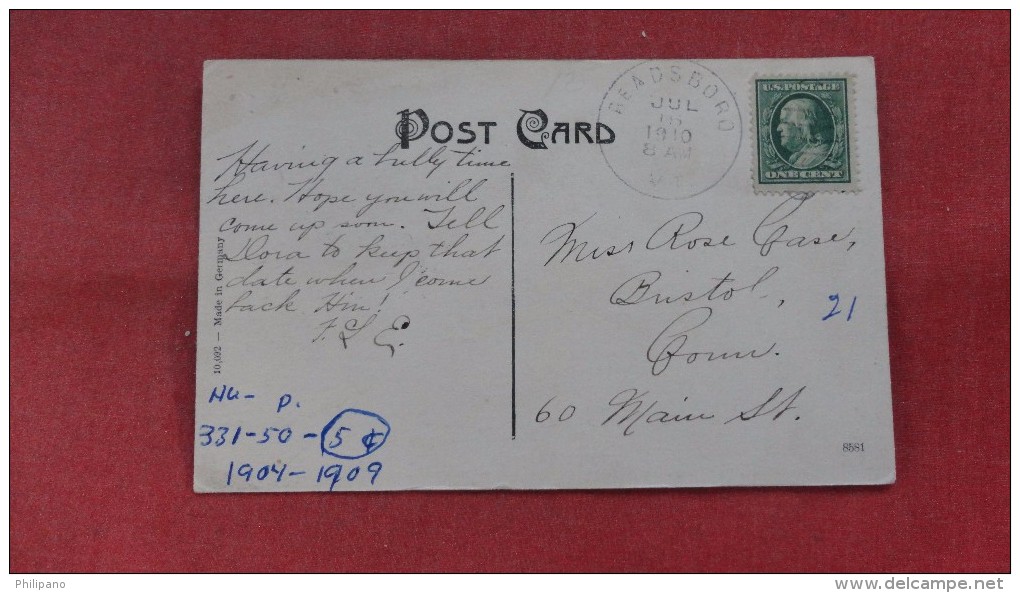 READSBORO
JUL
1910
8 AM
VT.
U.S. POSTAGE
ONE CENT
POST CARD
Having a bully time
here. Hope you will
come up soon. Tell
Dora to keep that
date when I come
back Hm!
F. L. E.
Miss Rose Case,
Bristol,
Conn.
60 Main St.
21
10,092 — Made in Germany
NH- P.
331-50-5¢
1904-1909
8581
Philipano
www.delcampe.net